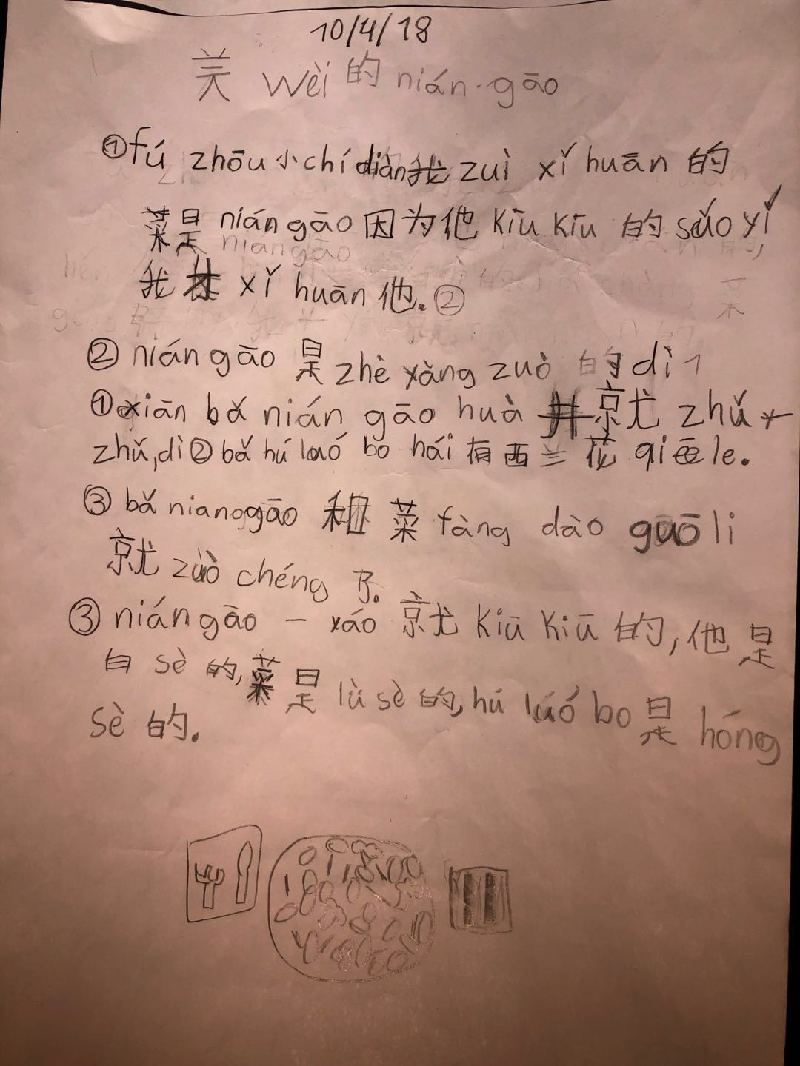 10/4/18
美 wèi 的 nián-gāo
①fú zhōu 小 chí diàn 我 zuì xǐ huān 的
菜是 nián gāo 因为他 kīu kīu 的 suǒ yǐ
我 xǐ huān 他.②
② nián gāo 是 zhè yàng zuò 的 dì 1
① xiān bǎ nián gāo huà 就 zhǔ
zhǔ, dì ② bǎ hú luó bo hái 有 西 兰 花 qiē le.
③ bǎ niangāo 和 菜 fàng dào guō li
就 zuò chéng 了.
③ nián gāo 一 xáo 就 kiū kiū 的, 他 是
白 sè 的, 菜 是 lù sè 的, hú luó bo 是 hóng
sè 的.